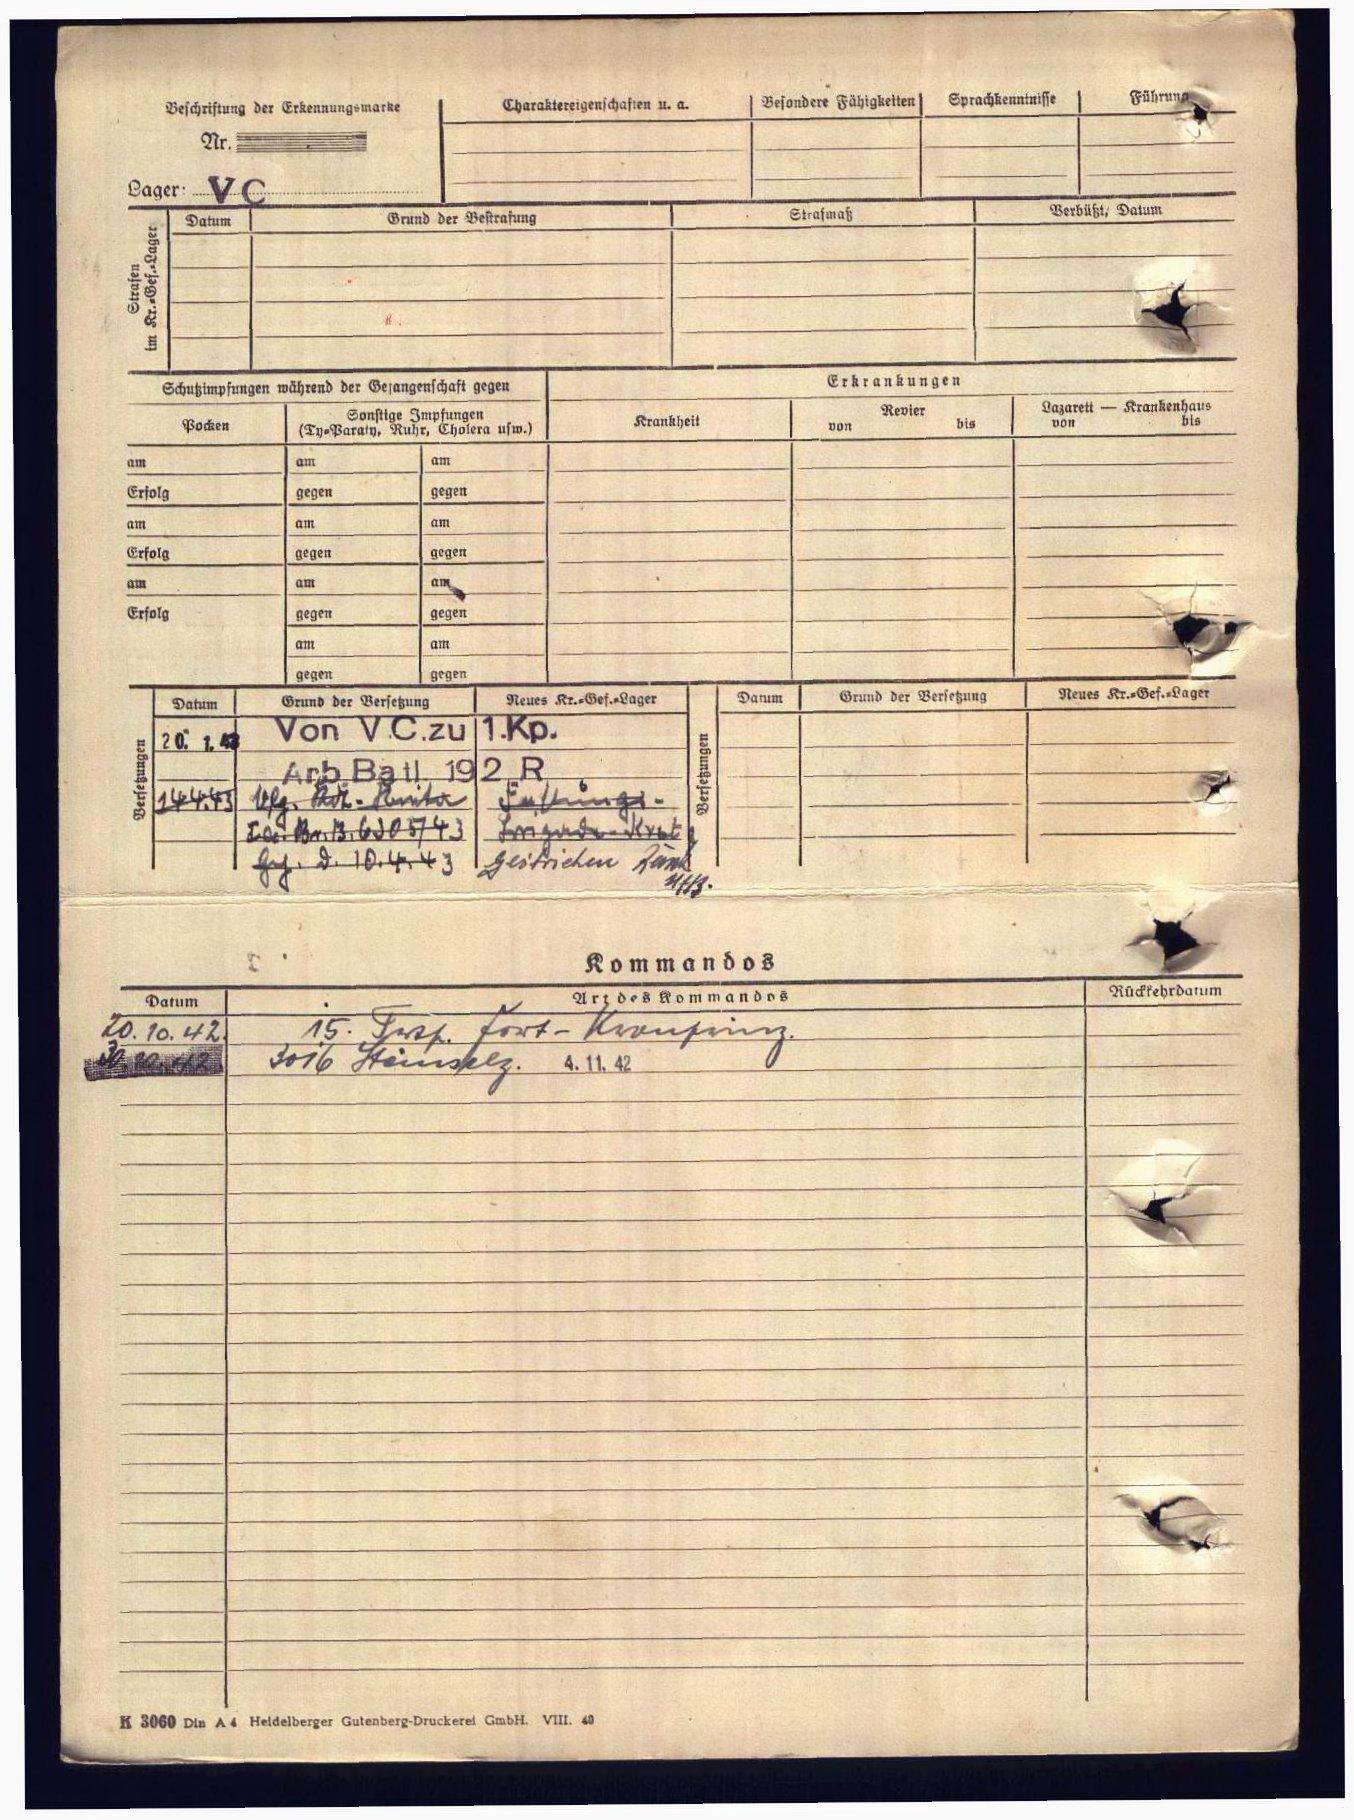 Beschriftung der Erkennungsmarke
Nr.
Lager: VC
Charaktereigenschaften u. a. Besondere Fähigkeiten Sprachkenntnisse Führung
Strafen im Kr.=Gef.=Lager
Datum Grund der Bestrafung Strafmaß Verbüßt, Datum
Schutzimpfungen während der Gefangenschaft gegen
Erkrankungen
Pocken
Sonstige Impfungen
(Ty=Paraty, Ruhr, Cholera usw.)
Krankheit
Revier
von bis
Lazarett — Krankenhaus
von bis
am am am
Erfolg gegen gegen
am am am
Erfolg gegen gegen
am am am
Erfolg gegen gegen
am am
gegen gegen
Versetzungen
Datum Grund der Versetzung Neues Kr.=Gef.=Lager
Versetzungen
Datum Grund der Versetzung Neues Kr.=Gef.=Lager
20. 1. 43 Von V.C. zu 1. Kp.
Arb. Batl 192 R
14.4.43
Br. B. 6305/43
d. 10.4.43 gestrichen
Kommandos
Datum Art des Kommandos Rückkehrdatum
20.10.42. 15. Fort - Kronprinz.
3016 Steinselz. 4. 11. 42
K 3060 Din A 4 Heidelberger Gutenberg-Druckerei GmbH. VIII. 40